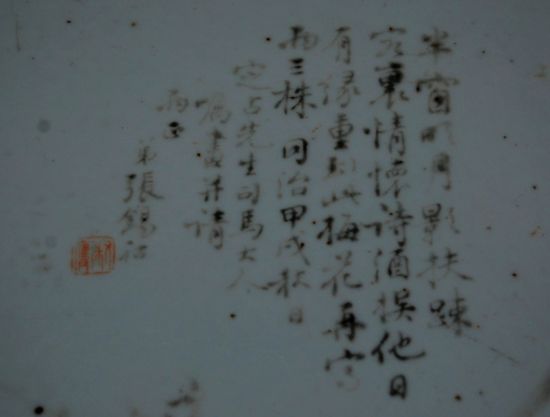 半窗明月影扶疎
客裏情懷詩酒娱他日
有緣重到此梅花再写
兩三株 同治甲戌秋日
定占先生司馬大人
属畫并請
兩正
弟張錫